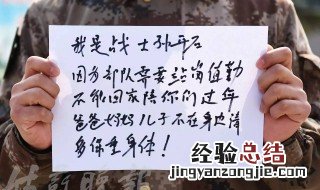 我是战士孙开石
因为部队需要站岗值勤
不能回家陪你们过年
爸爸妈妈儿子不在身边请
多保重身体!
经验总结
www.jingyanzongjie.com